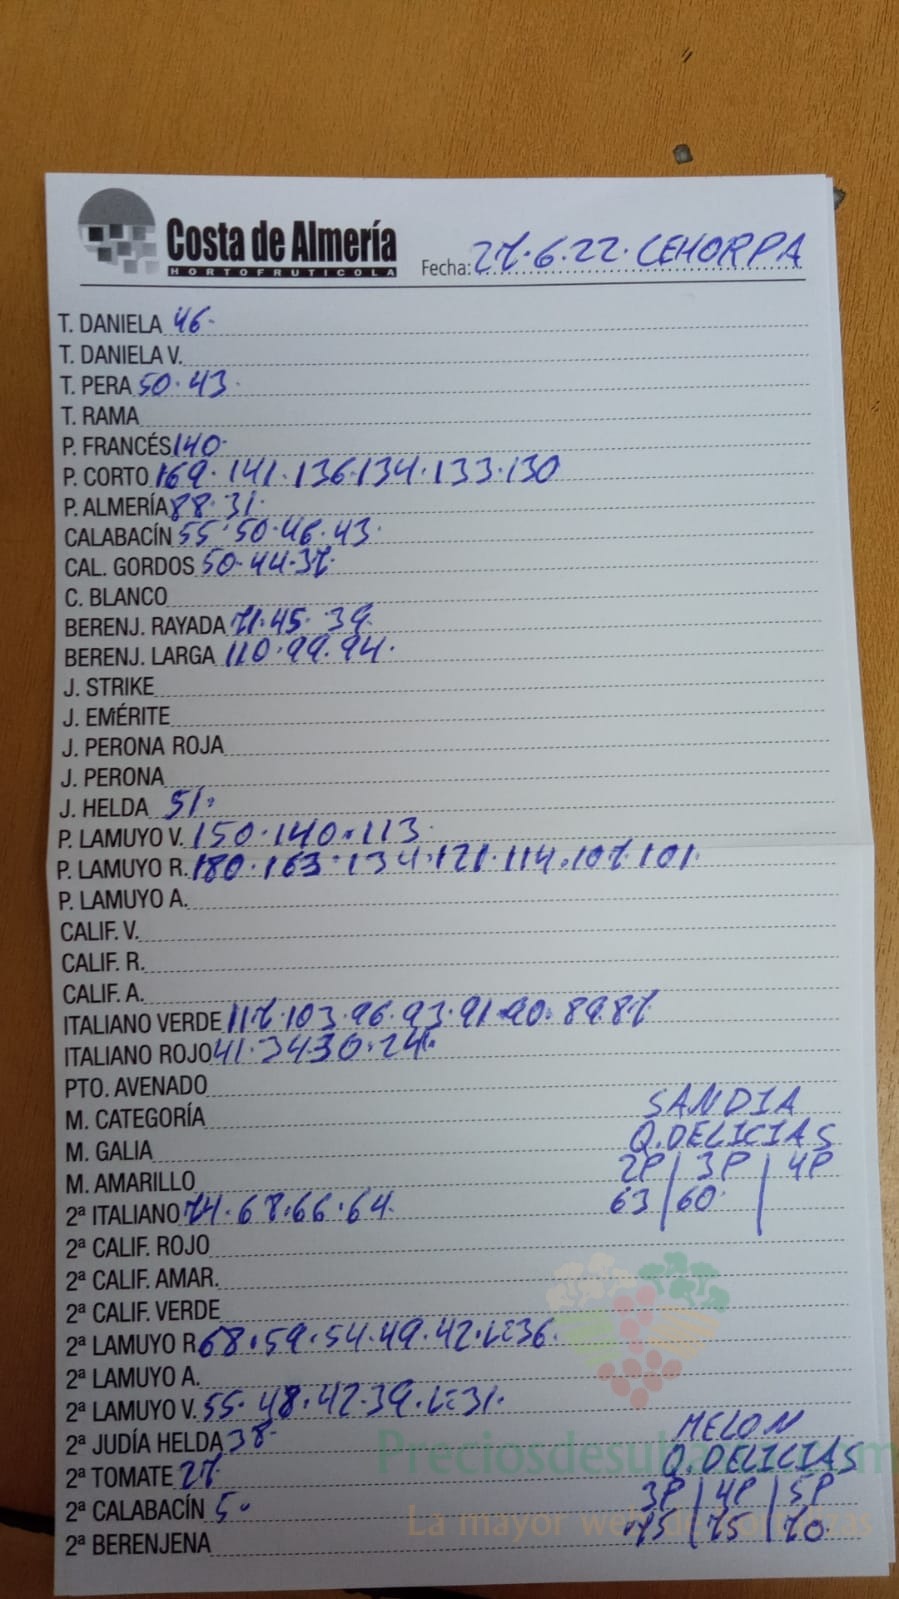 Costa de Almería
HORTOFRUTICOLA
Fecha: 27.6.22. CEHORPA
T. DANIELA 46.
T. DANIELA V.
T. PERA 50.43.
T. RAMA
P. FRANCÉS 140.
P. CORTO 169.141.136.134.133.130
P. ALMERÍA 88.31.
CALABACÍN 55.50.46.43.
CAL. GORDOS 50.44.37.
C. BLANCO
BERENJ. RAYADA 71.45.39.
BERENJ. LARGA 110.99.94.
J. STRIKE
J. EMÉRITE
J. PERONA ROJA
J. PERONA
J. HELDA 51.
P. LAMUYO V. 150.140.113.
P. LAMUYO R. 180.163.134.121.114.107.101.
P. LAMUYO A.
CALIF. V.
CALIF. R.
CALIF. A.
ITALIANO VERDE 117.103.96.93.91.90.89.87
ITALIANO ROJO 41.34.30.24.
PTO. AVENADO
M. CATEGORÍA
SANDIA
M. GALIA
Q.DELICIAS
M. AMARILLO
2P | 3P | 4P
63 | 60. |
2ª ITALIANO 74.67.66.64.
2ª CALIF. ROJO
2ª CALIF. AMAR.
2ª CALIF. VERDE
2ª LAMUYO R. 68.59.54.49.42.L=36.
2ª LAMUYO A.
2ª LAMUYO V. 55.48.42.39.L=31.
2ª JUDÍA HELDA 38.
MELON
Q.DELICIAS
2ª TOMATE 27
3P | 4P | 5P
2ª CALABACÍN 5.
75 | 75 | 70.
2ª BERENJENA
La mayor web de hortalizas